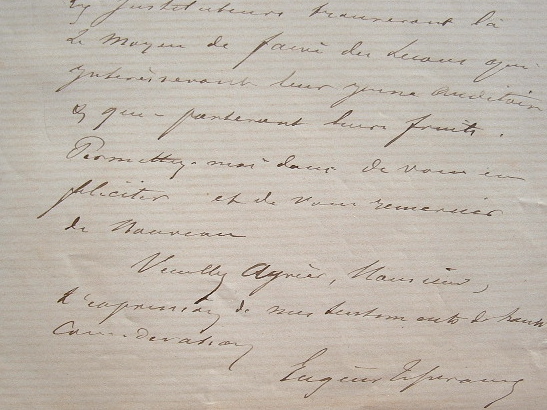 Les instituteurs trouveront là
le moyen de faire des leçons qui
intéresseront leur jeune auditoire
& qui porteront leurs fruits.
Permettez-moi donc de vous en
féliciter et de vous remercier
de nouveau
Veuillez agréer, Monsieur,
l'expression de mes sentiments de haute
considération
Eugène